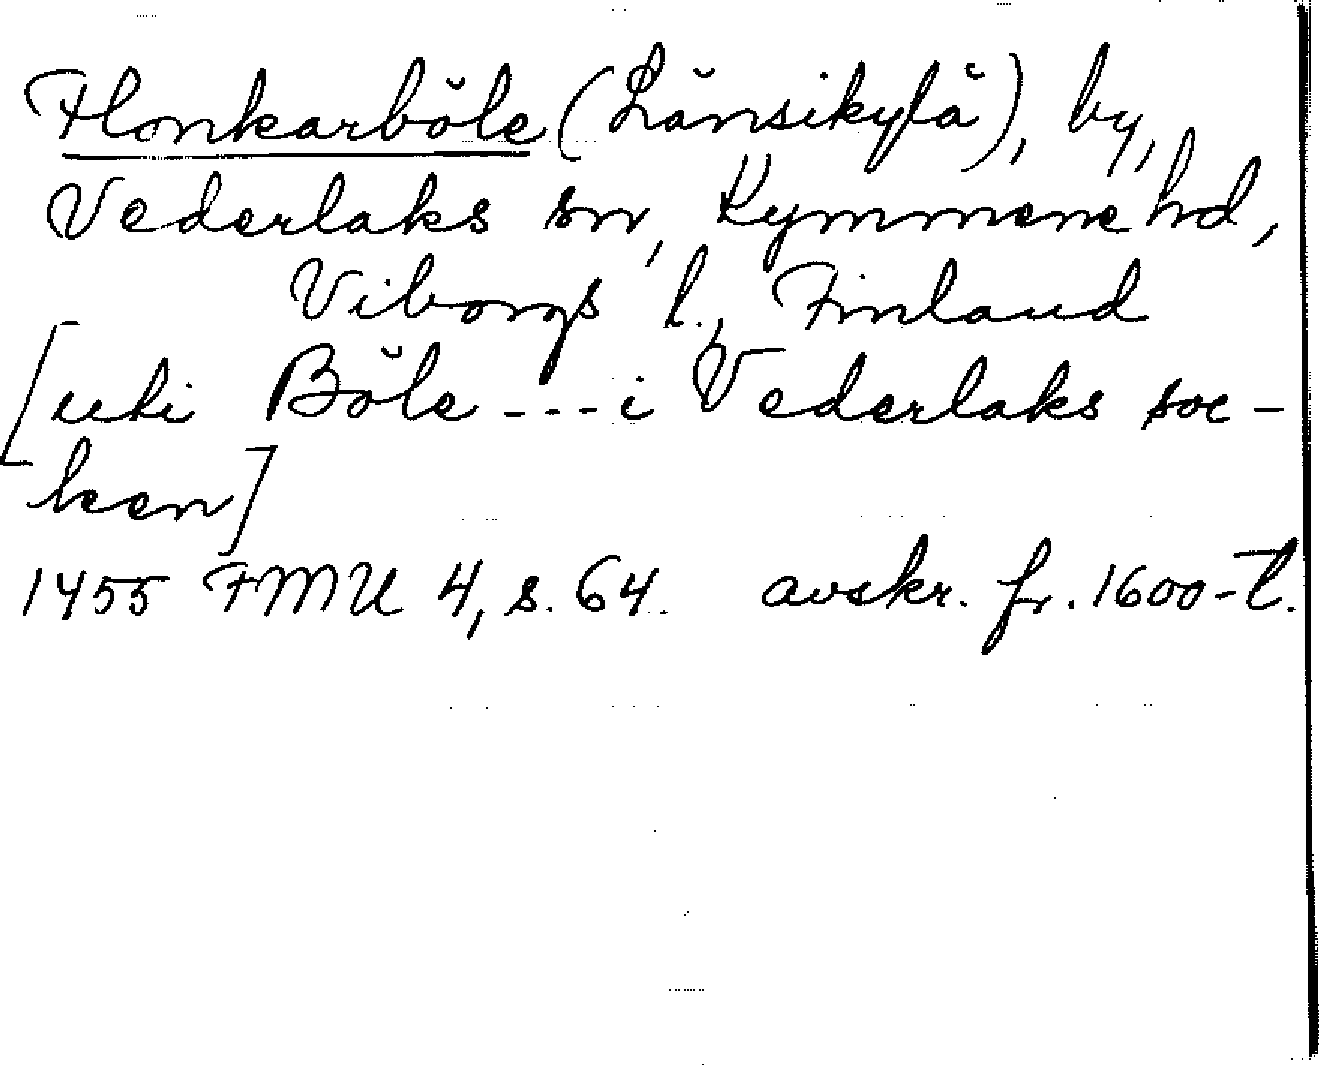 Honkarböle (Länsikylä), by,
Vederlaks sn, Kymmene hd,
Viborgs l., Finland
[uti Böle --- i Vederlaks soc-
ken]
1455 FMU 4, s. 64. avskr. fr. 1600-t.